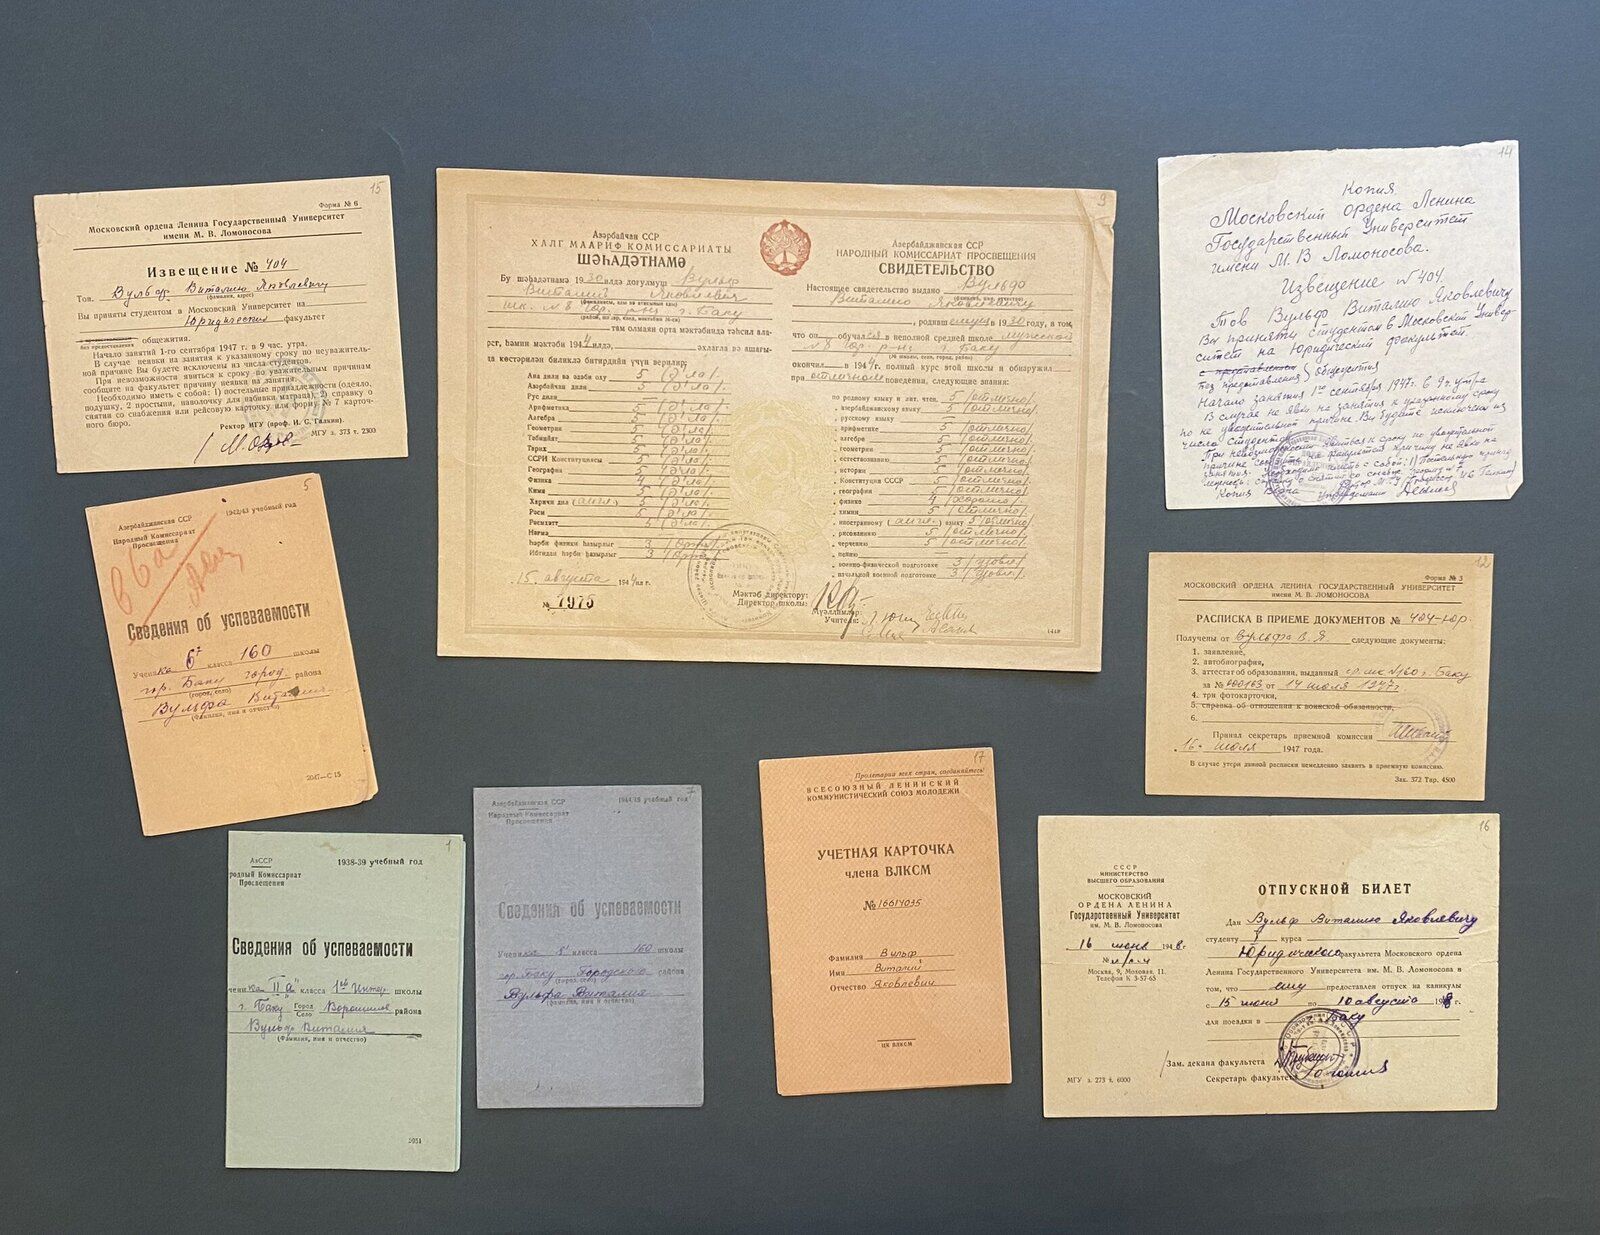 15
Форма № 6
Московский ордена Ленина Государственный Университет
имени М. В. Ломоносова
Извещение № 404
Тов. Вульф Виталию Яковлевичу
(фамилия, адрес)
Вы приняты студентом в Московский Университет на
Юридический факультет
без предоставления общежития.
Начало занятий 1-го сентября 1947 г. в 9 час. утра.
В случае неявки на занятия к указанному сроку по неуважитель-
ной причине Вы будете исключены из числа студентов.
При невозможности явиться к сроку по уважительным причинам
сообщите на факультет причину неявки на занятия.
Необходимо иметь с собой: 1) постельные принадлежности (одеяло,
подушку, 2 простыни, наволочку для набивки матраца), 2) справку о
снятии со снабжения или рейсовую карточку или форму № 7 карточ-
ного бюро.
Ректор МГУ (проф. И. С. Галкин).
МГУ з. 373 т. 2300
9
Азәрбайҹан ССР
ХАЛГ МААРИФ КОМИССАРИАТЫ
ШӘҺАДӘТНАМӘ
Бу шәһадәтнамә 1930 илдә доғулмуш Вульф
Виталий Яковлевич
шк. № 8 гор. р-на г. Баку
там олмајан орта мәктәбиндә тәһсил ала-
рәг, һәмин мәктәби 1944 илдә,
көстәрилән биликләр битирдији үчүн верилир:
Ана дили вә әдәбијјат 5 (әла)
Азәрбайҹан дили 5 (әла)
Рус дили
Арифметика 5 (әла)
Алгебра 5 (әла)
Геометрия 5 (әла)
Тәбиијјат 5 (әла)
Тарих 5 (әла)
ССРИ Конституциясы 5 (әла)
География 5 (әла)
Физика 4
Кимя 5 (әла)
Хариҹи дил (англ.) 5 (әла)
Рәсм 5 (әла)
Рәсмхәтт 5 (әла)
Нәғмә
Һәрби физики һазырлыг 3
Ибтидаи һәрби һазырлыг 3
15 августа 1944 ил г.
№ 7975
Азербайджанская ССР
НАРОДНЫЙ КОМИССАРИАТ ПРОСВЕЩЕНИЯ
СВИДЕТЕЛЬСТВО
Настоящее свидетельство выдано Вульфо
Виталию Яковлевичу
, родившемуся в 1930 году, в том,
что он обучался в неполной средней школе мужской
№ 8 гор. р-на г. Баку
(№ школы, село, город, район)
окончил в 1944 г. полный курс этой школы и обнаружил
при отличном поведении, следующие знания:
по родному языку и лит. чтен. 5 (отлично)
„ азербайджанскому языку 5 (отлично)
„ русскому языку
„ арифметике 5 (отлично)
„ алгебре 5 (отлично)
„ геометрии 5 (отлично)
„ естествознанию 5 (отлично)
„ истории 5 (отлично)
„ Конституции СССР 5 (отлично)
„ географии 5 (отлично)
„ физике 4 (хорошо)
„ химии 5 (отлично)
„ иностранному (англ.) языку 5 (отлично)
„ рисованию 5 (отлично)
„ черчению 5 (отлично)
„ пению —
„ военно-физической подготовке 3
„ начальной военной подготовке 3
Мәктәб директору:
Директор школы:
Мүәллимләр:
Учителя:
14
Копия
Московский ордена Ленина
Государственный Университет
имени М. В Ломоносова.
Извещение № 404.
Тов Вульф Виталию Яковлевичу
Вы приняты студентом в Московский Универ-
ситет на Юридический факультет.
с предоставлением
без предоставления } общежития
Начало занятия 1го сентября 1947г. в 9 ч. утра
В случае не явки на занятия к указанному сроку
по не уважительной причине Вы будете исключены из
числа студентов
При невозможности явиться к сроку по уважительной
причине сообщите на факультет причину не явки на
занятия. Необходимо иметь с собой: 1) Постельную принад
Ректор МГУ (профессор И С Галкин)
Копия Верна Управделами
12
Форма № 3
МОСКОВСКИЙ ОРДЕНА ЛЕНИНА ГОСУДАРСТВЕННЫЙ УНИВЕРСИТЕТ
имени М. В. ЛОМОНОСОВА
РАСПИСКА В ПРИЕМЕ ДОКУМЕНТОВ № 404-Юр.
Получены от Вульфа В. Я. следующие документы:
1. заявление,
2. автобиография,
3. аттестат об образовании, выданный ср. шк №160 г. Баку
за № 000163 от 14 июля 1947г
4. три фотокарточки,
5. справка об отношении к воинской обязанности,
6.
Принял секретарь приемной комиссии
16 июля 1947 года.
В случае утери данной расписки немедленно заявить в приемную комиссию.
Зак. 372 Тир. 4500
5
Азербайджанская ССР
Народный Комиссариат
Просвещения
1942/43 учебный год
6 ба
Сведения об успеваемости
Ученика 6 класса 160 школы
гор. Баку город. района
(город, село)
Вульфа Виталия
(Фамилия, имя и отчество)
2047—С 15
1
АзССР
родный Комиссариат
Просвещения
1938-39 учебный год
Сведения об успеваемости
ченика II „а“ класса 1ой Интер. школы
г. Баку Город Село Ворошилов района
Вульф Виталия
(Фамилия, имя и отчество)
7
Азербайджанская ССР
Народный Комиссариат
Просвещения
1944/45 учебный год
Сведения об успеваемости
Ученика 8 класса 160 школы
гор. Баку Городского района
(город, село)
Вульфа Виталия
(фамилия, имя и отчество)
17
Пролетарии всех стран, соединяйтесь!
ВСЕСОЮЗНЫЙ ЛЕНИНСКИЙ
КОММУНИСТИЧЕСКИЙ СОЮЗ МОЛОДЕЖИ
УЧЕТНАЯ КАРТОЧКА
члена ВЛКСМ
№ 16614035
Фамилия Вульф
Имя Виталий
Отчество Яковлевич
ЦК ВЛКСМ
16
СССР
МИНИСТЕРСТВО
ВЫСШЕГО ОБРАЗОВАНИЯ
МОСКОВСКИЙ
ОРДЕНА ЛЕНИНА
Государственный Университет
им. М. В. Ломоносова
16 июня 1948 г.
№
Москва, 9, Моховая, 11.
Телефон К 3-57-65
МГУ з. 273 т. 6000
ОТПУСКНОЙ БИЛЕТ
Дан Вульф Виталию Яковлевичу
студенту I курса
Юридического факультета Московского ордена
Ленина Государственного Университета им. М. В. Ломоносова в
том, что ему предоставлен отпуск на каникулы
с 15 июня по 10 августа 1948 г.
для поездки в Баку
Зам. декана факультета
Секретарь факультета